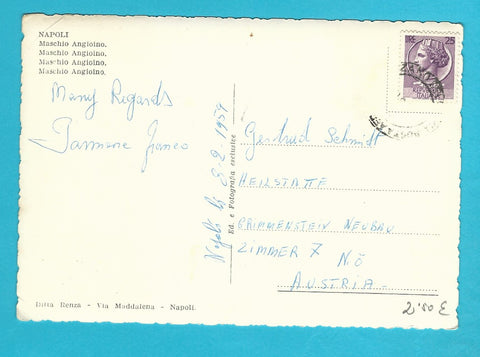 NAPOLI
Maschio Angioino.
Maschio Angioino.
Maschio Angioino.
Maschio Angioino.
Many Regards
Napoli li 8-2-1954
Ed. e Fotografia esclusive
25
Gertrud Schmidt
HEILSTATTE
GRIMMENSTEIN NEUBAU
ZIMMER 7 N.Ö
AUSTRIA
Ditta Renza - Via Maddalena - Napoli.